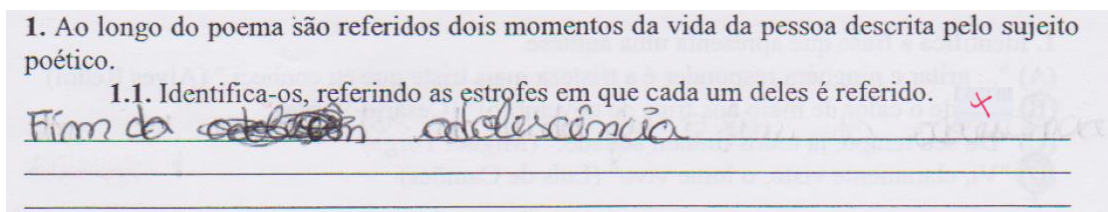 1. Ao longo do poema são referidos dois momentos da vida da pessoa descrita pelo sujeito
poético.
1.1. Identifica-os, referindo as estrofes em que cada um deles é referido.
Fim da adolescência